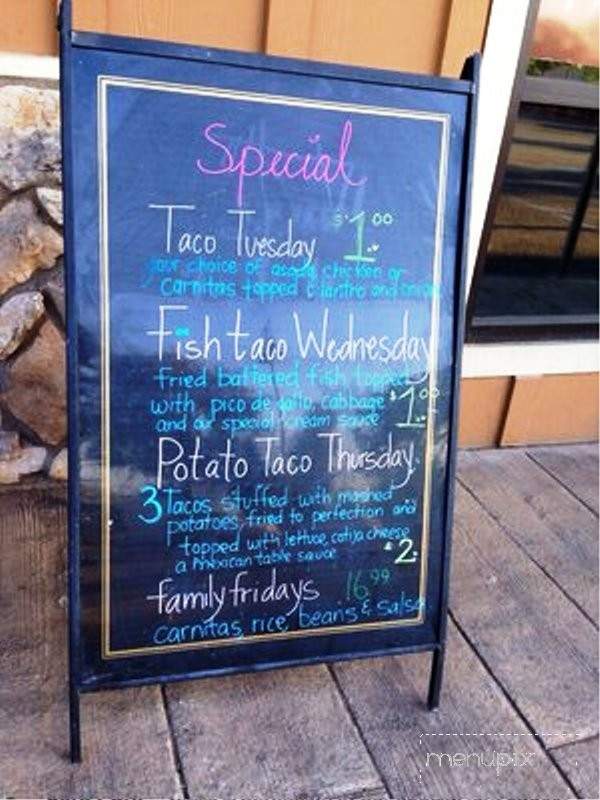 Special
Taco Tuesday $1.00
your choice of asada, chicken or
carnitas topped cilantro and onion
Fish taco Wednesday
fried battered fish topped
with pico de gallo, cabbage $1.00
and our special cream sauce
Potato Taco Thursday
3 Tacos stuffed with mashed
potatoes, fried to perfection and
topped with lettuce, cotija cheese
a mexican table sauce $2.
family fridays 16.99
carnitas, rice, beans & salsa
menupix